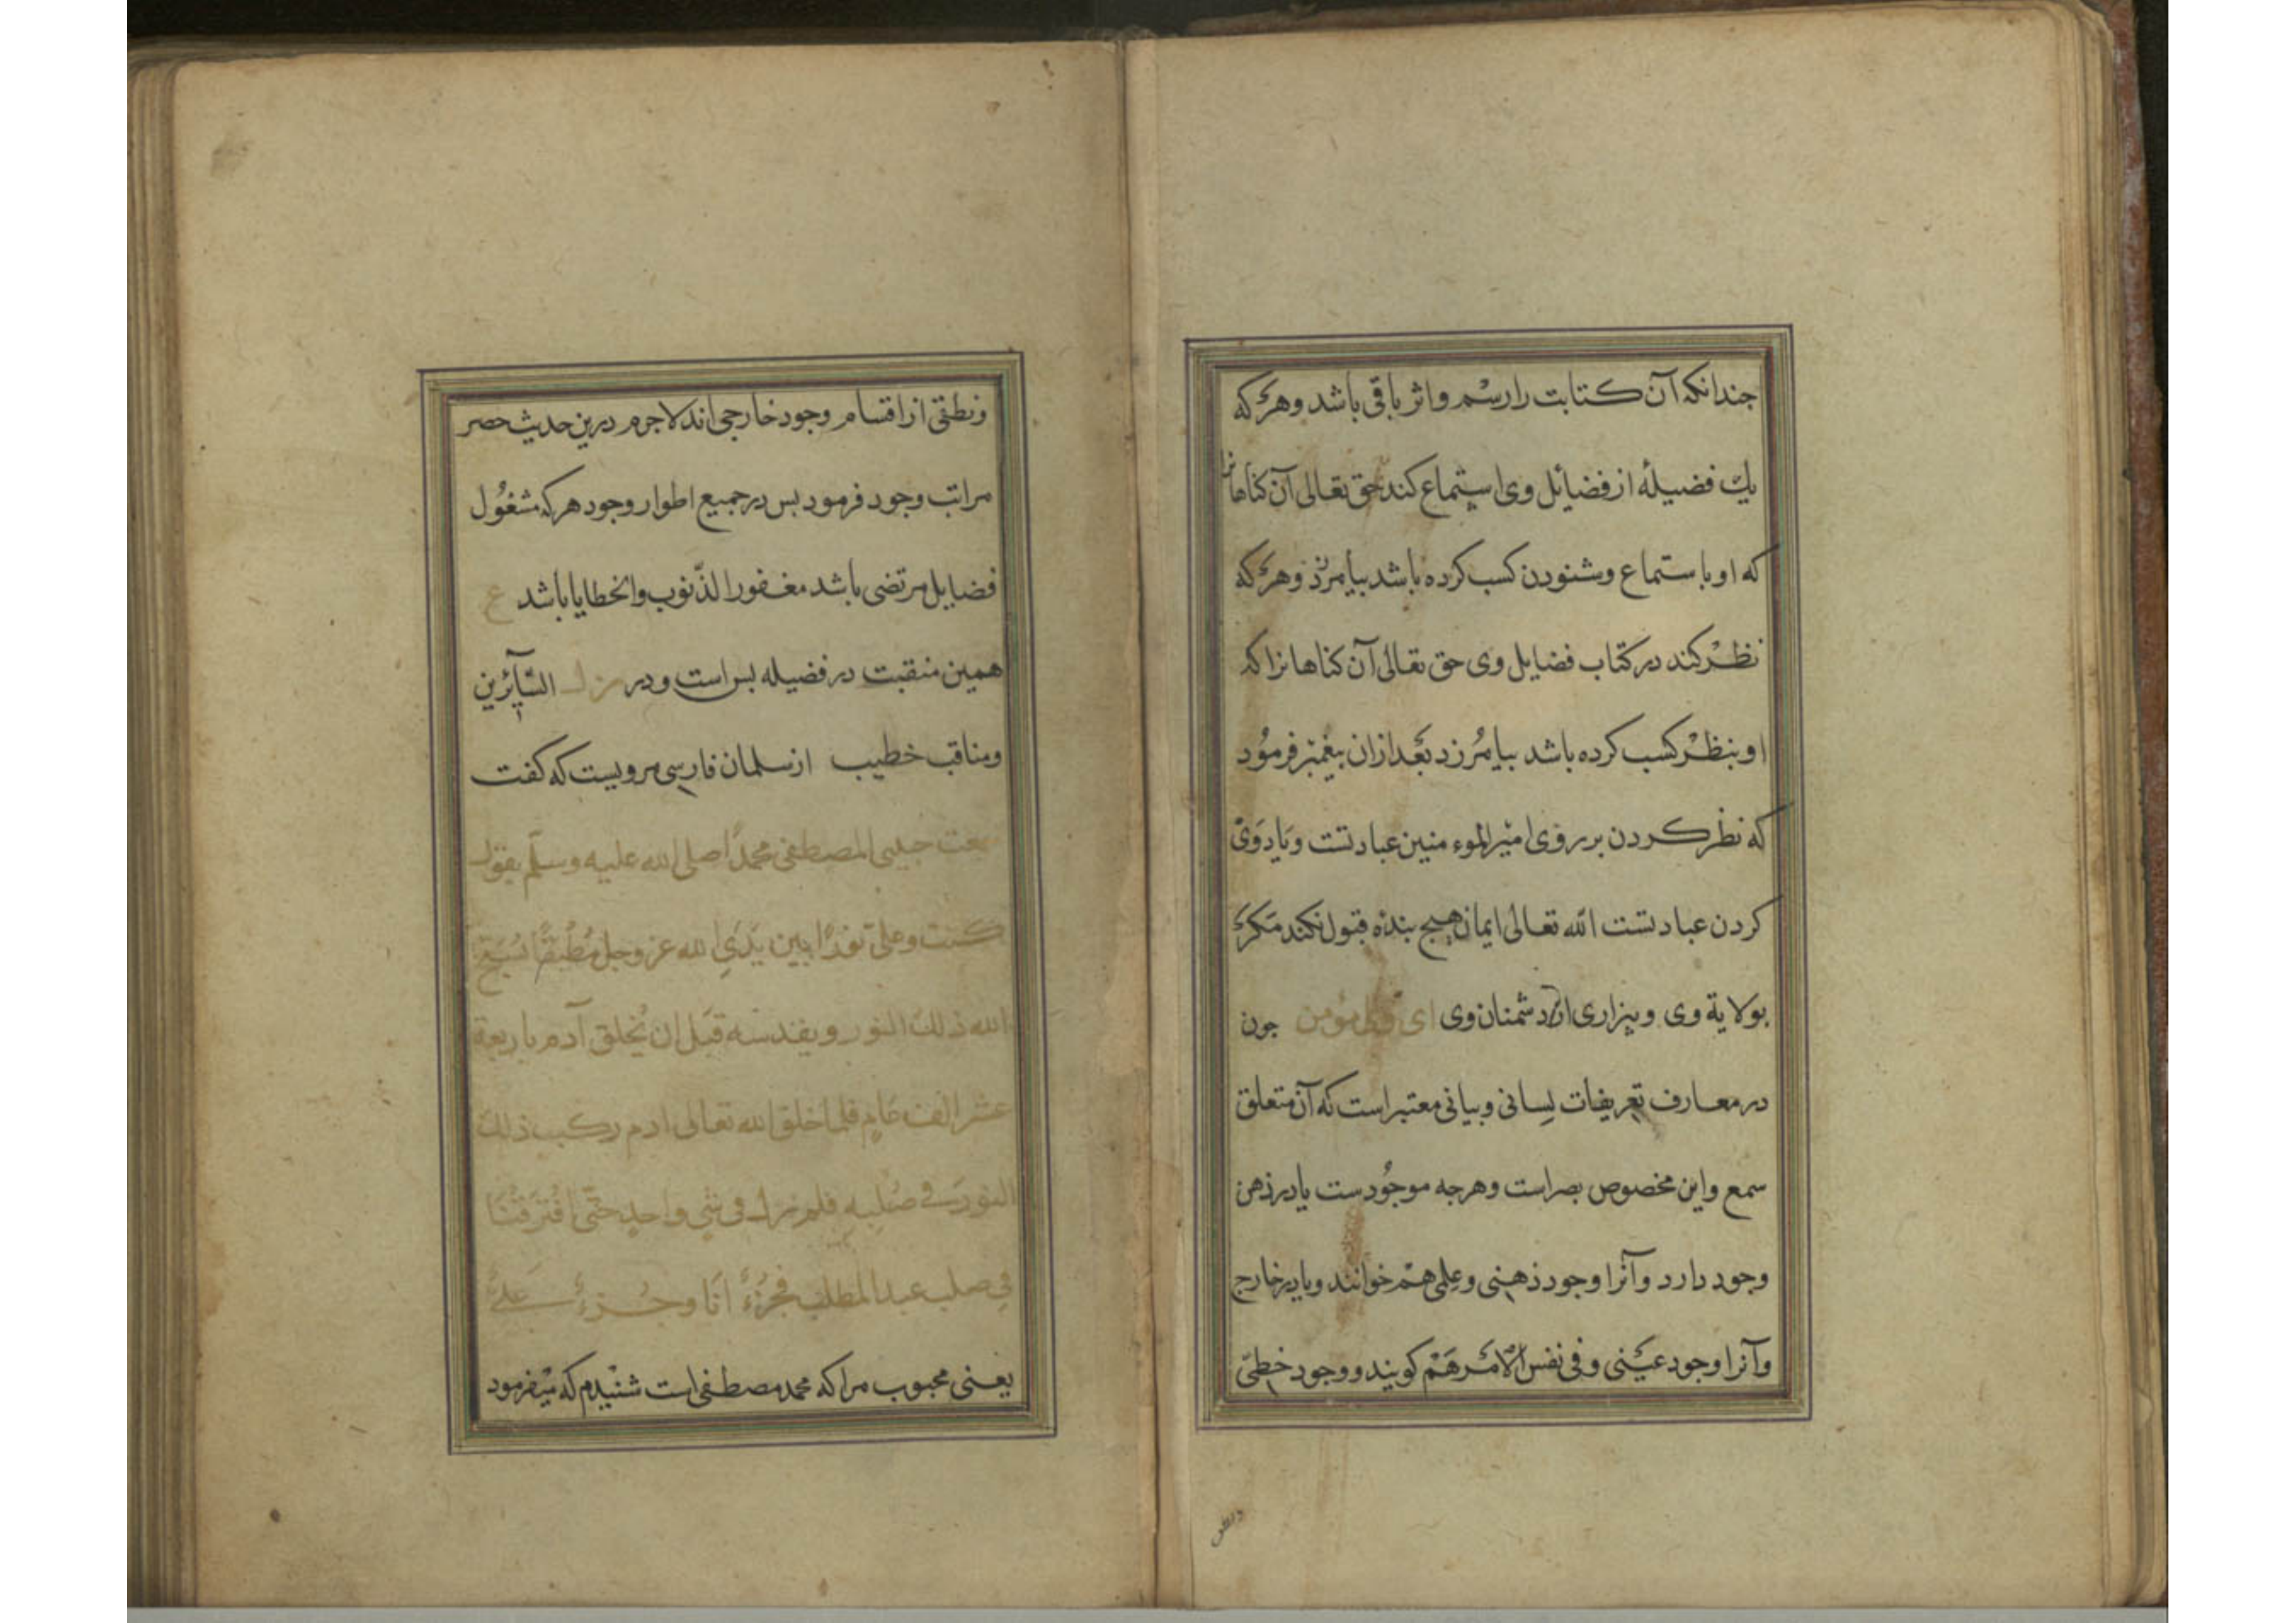 جندانکه آن کتابت را رسم و اثر باقی باشد وهر که
یك فضیلهٔ از فضائل وی استماع کند حق تعالی آن کناهانرا
که او باستماع وشنودن کسب کرده باشد بیامرزد وهر که
نظر کند در کتاب فضایل وی حق تعالی آن کناهانرا که
او بنظر کسب کرده باشد بیامرزد بعد ازان بیغمبر فرمود
که نظر کردن بر روی امیرالموءمنین عبادتست ویاد وی
کردن عبادتست الله تعالی ایمان هیچ بندهٔ قبول نکند مکر
بولایة وی وبیزاری از دشمنان وی ای ولی مؤمن جون
در معارف تعریفات لسانی وبیانی معتبر است که آن متعلق
سمع واین مخصوص بصر است وهرجه موجودست یا در ذهن
وجود دارد وآنرا وجود ذهنی وعلمی هم خوانند ویا در خارج
وآنرا وجود عینی وفی نفس الامر هم کویند ووجود خطی
ونطقی از اقسام وجود خارجی اند لاجرم درین حدیث حصر
مراتب وجود فرمود بس در جمیع اطوار وجود هر که مشغول
فضایل مرتضی باشد مغفور الذنوب والخطایا باشد ع
همین منقبت در فضیله بس است ودر السّآئرین
ومناقب خطیب از سلمان فارسی مرویست که کفت
سمعت حبیبی المصطفی محمدًا صلی الله علیه وسلّم یقول
کنت وعلیّ نورًا بین یدی الله عز وجل مُطبقًا یُسَبّح
الله ذلك النور ویقدسه قبل ان یُخلق آدم باربعة
عشر الف عامٍ فلما خلق الله تعالی ادم رکب ذلك
النور فی صُلبِهِ فلم نزل فی شیٍ واحدٍ حتّی افترقنا
فی صلب عبد المطلب فجُزءٌ انا وجُزءٌ علیٌّ
یعنی محبوب مرا که محمد مصطفی است شنیدم که میفرمود